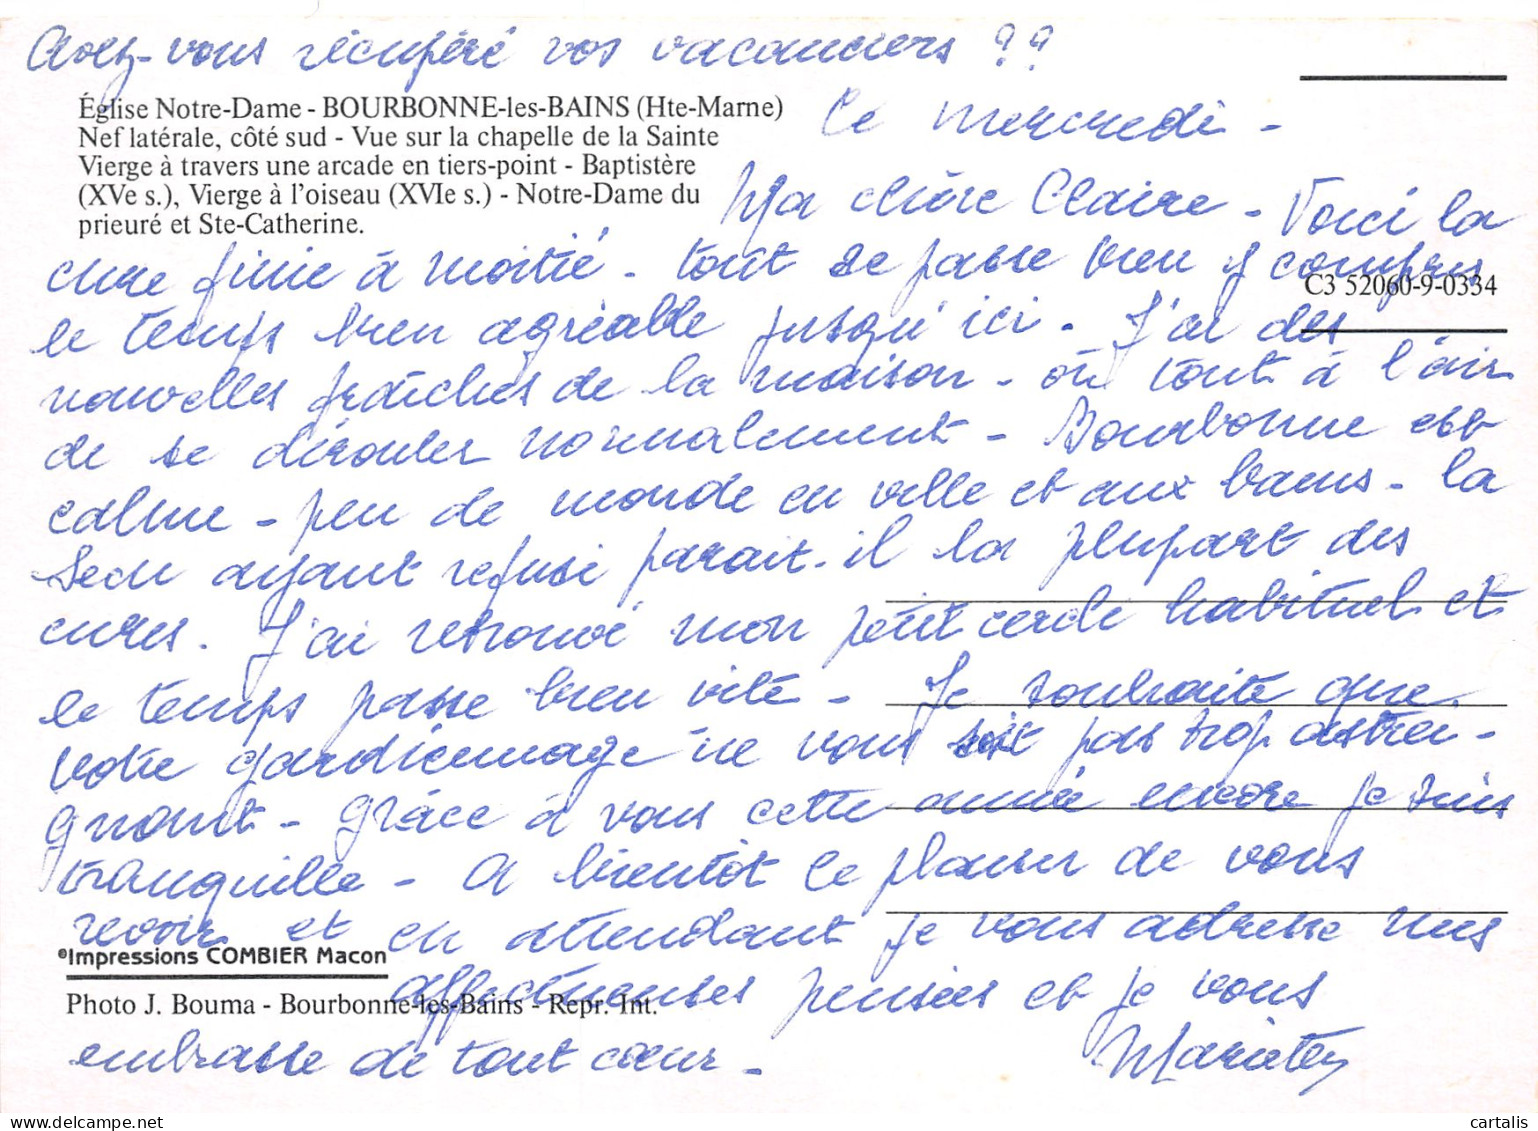 Avez-vous récupéré vos vacanciers ??
Église Notre-Dame - BOURBONNE-les-BAINS (Hte-Marne)
Nef latérale, côté sud - Vue sur la chapelle de la Sainte
Vierge à travers une arcade en tiers-point - Baptistère
(XVe s.), Vierge à l'oiseau (XVIe s.) - Notre-Dame du
prieuré et Ste-Catherine.
Ce mercredi -
Ma chère Claire - Voici la
cure finie à moitié - tout se passe bien y compris
C3 52060-9-0334
le temps bien agréable jusqu'ici - J'ai des
nouvelles fraîches de la maison - où tout à l'air
de se dérouler normalement - Bourbonne est
calme - peu de monde en ville et aux bains - la
Secu ayant refusé parait-il la plupart des
cures. J'ai retrouvé mon petit cercle habituel et
le temps passe bien vite - Je souhaite que
votre gardiennage ne vous soit pas trop astrei-
gnant - grâce à vous cette année encore je suis
tranquille - A bientôt le plaisir de vous
revoir et en attendant je vous adresse mes
©Impressions COMBIER Macon
affectueuses pensées et je vous
Photo J. Bouma - Bourbonne-les-Bains - Repr. Int.
embrasse de tout cœur -
cartalis